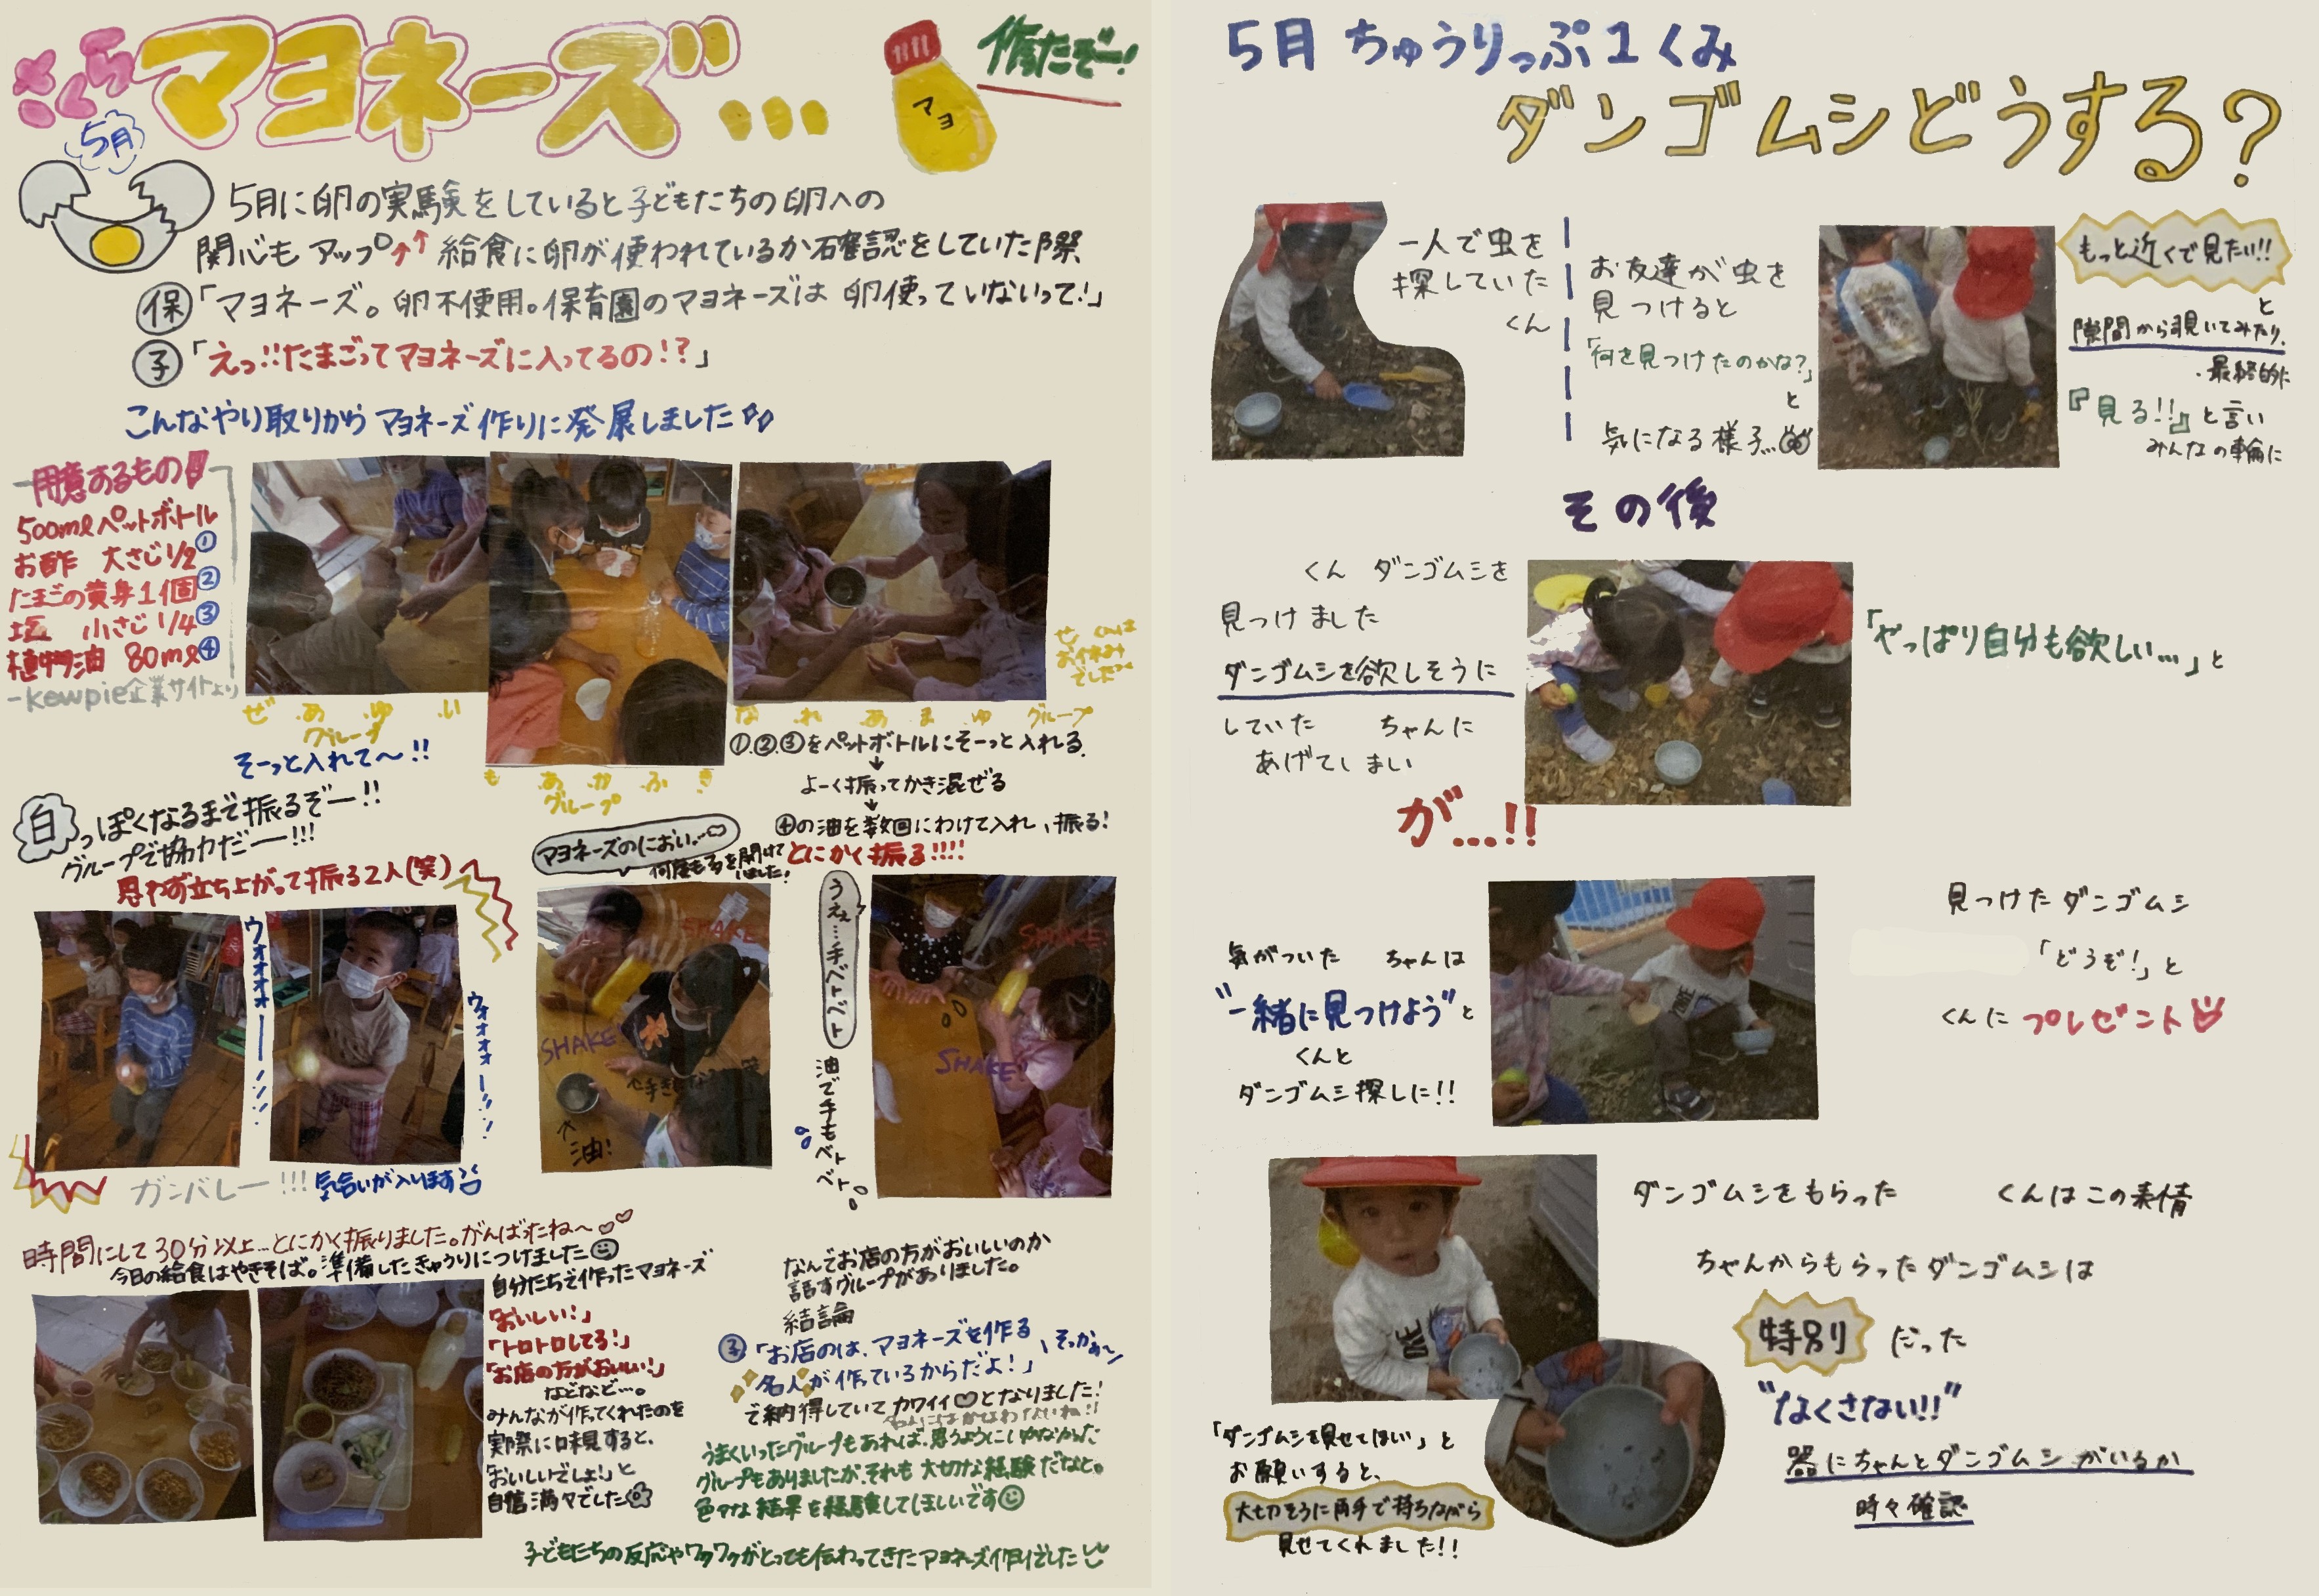 さくら
マヨネーズ…
作ったぞー!
マヨ
5月
5月に卵の実験をしていると子どもたちの卵への
関心もアップ↑↑給食に卵が使われているか確認をしていた際、
保「マヨネーズ。卵不使用。保育園のマヨネーズは卵使っていないって!」
子「えっ!!たまごってマヨネーズに入ってるの!?」
こんなやり取りからマヨネーズ作りに発展しました
用意するもの
500mlペットボトル
お酢 大さじ1/2 ①
たまごの黄身1個 ②
塩 小さじ1/4 ③
植物油 80ml ④
-kewpie企業サイトより
ぜ あ ゆ い
グループ
そーっと入れて〜!!
も あ か ふ き
グループ
な れ あ ま ゆ グループ
せ くんは
お休み
でした
①.②.③をペットボトルにそーっと入れる
↓
よーく振ってかき混ぜる
↓
④の油を数回にわけて入れ、振る!
とにかく振る!!!!
白っぽくなるまで振るぞー!!
グループで協力だー!!!
思わず立ち上がって振る2人(笑)
ウオオオオー!!!
ウオオオオー!!!
ガンバレー!!!
気合いが入ります
マヨネーズのにおい…
何度もふたを開けて
いました!
SHAKE
SHAKE
油!
うえぇ…手ベトベト
油で手もベトベト
SHAKE
SHAKE
時間にして30分以上…とにかく振りました。がんばったね〜
今日の給食はやきそば。準備したきゅうりにつけました
自分たちで作ったマヨネーズ
「おいしい!」
「トロトロしてる!」
「お店の方がおいしい!」
などなど…。
みんなが作ってくれたのを
実際に味見すると、
「おいしいでしょ!」と
自信満々でした
なんでお店の方がおいしいのか
話すグループがありました。
結論
子「お店のは、マヨネーズを作る
名人が作っているからだよ!」
そっかぁ〜
で納得していてカワイイ♡となりました!
名人にはかなわないね!!
うまくいったグループもあれば、思うようにいかなかった
グループもありましたが、それも大切な経験だなと。
色々な結果を経験してほしいです
子どもたちの反応やワクワクがとっても伝わってきたマヨネーズ作りでした
5月 ちゅうりっぷ1くみ
ダンゴムシどうする?
一人で虫を
探していた
くん
お友達が虫を
見つけると
「何を見つけたのかな?」
と
気になる様子…
もっと近くで見たい!!
と
隙間から覗いてみたり、
最終的に
『見る!!』と言い
みんなの輪に
その後
くん ダンゴムシを
見つけました
ダンゴムシを欲しそうに
していた ちゃんに
あげてしまい
が…!!
「やっぱり自分も欲しい…」と
気がついた ちゃんは
"一緒に見つけよう"と
くんと
ダンゴムシ探しに!!
見つけたダンゴムシ
「どうぞ!」と
くんに プレゼント
ダンゴムシをもらった くんはこの表情
ちゃんからもらったダンゴムシは
特別 だった
"なくさない!!"
器にちゃんとダンゴムシがいるか
時々確認
「ダンゴムシを見せてほしい」と
お願いすると、
大切そうに両手で持ちながら
見せてくれました!!